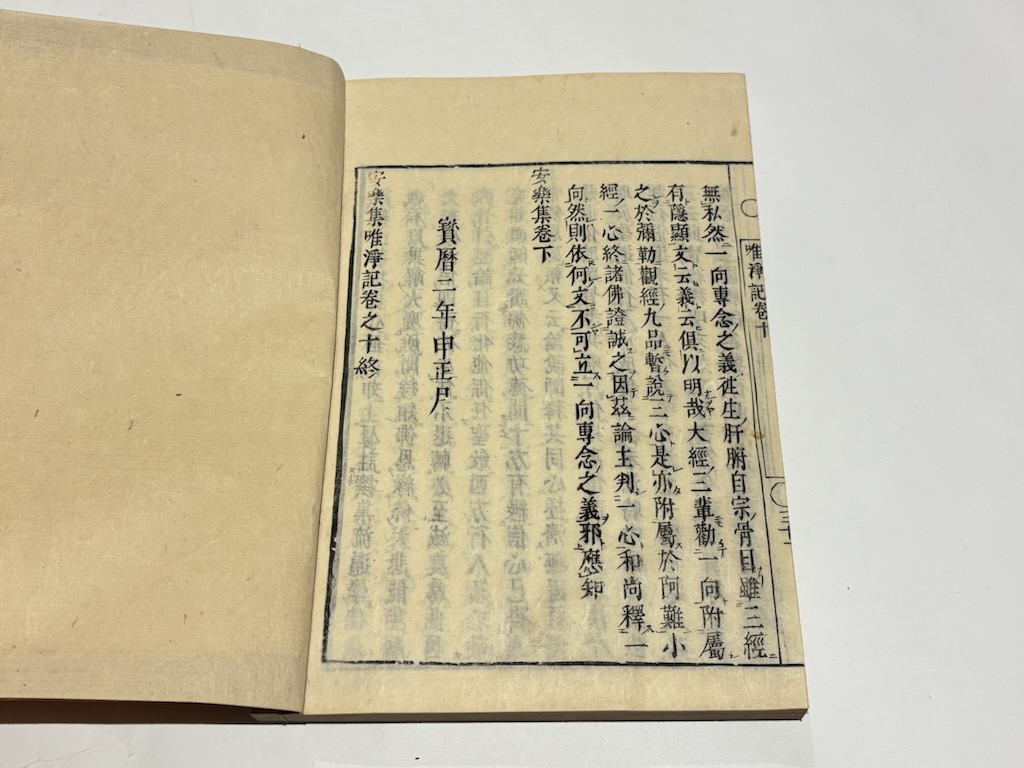 唯淨記卷十
無私然一向專念之義徃生肝腑自宗骨目雖三經
有隱顯文云義云俱以明哉大經三輩勸一向附屬
之於彌勒觀經九品暫說三心是亦附屬於阿難小
經一心終諸佛證誠之因茲論主判一心和尚釋一
向然則依何文不可立一向專念之義邪應知
安樂集卷下
寳曆三年申正月
安樂集唯淨記卷之十終